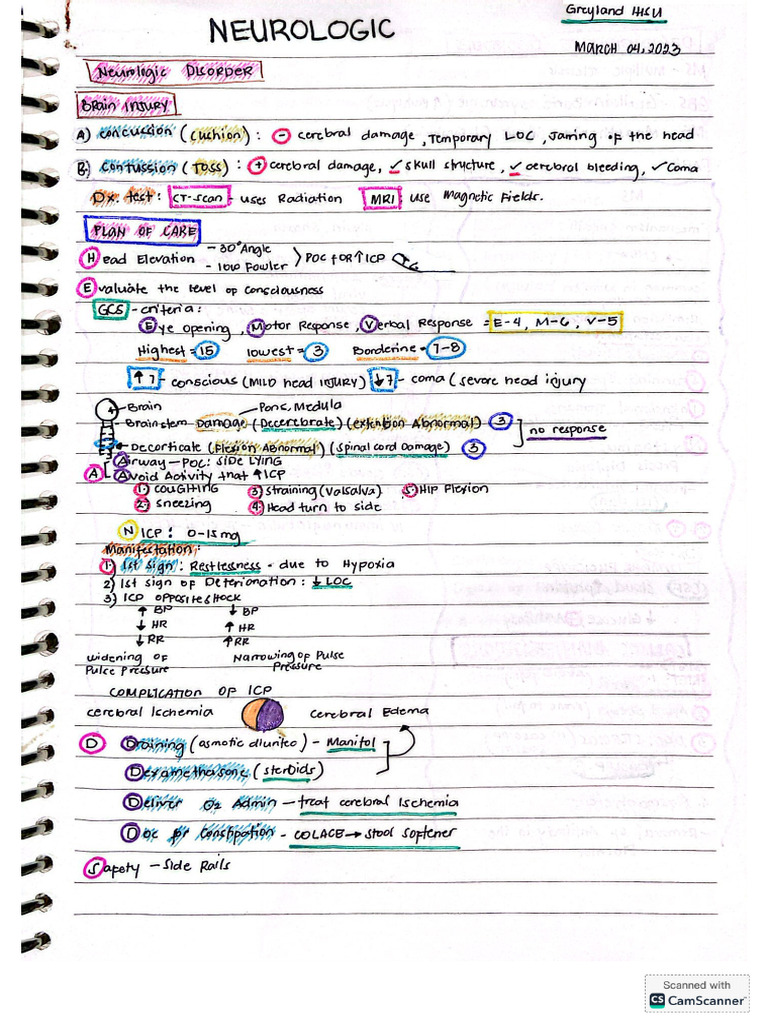 Greyland HSU
NEUROLOGIC
MARCH 04, 2023
Neurologic DISORDER
Brain INJURY
A) concussion (cushion) : - cerebral damage, Temporary LOC, Jarring of the head
B) contussion (Toss) : + cerebral damage, ✓ skull structure, ✓ cerebral bleeding, ✓ Coma
Dx. test : CT-scan - uses Radiation MRI use Magnetic Fields.
PLAN OF CARE
Head Elevation - 30° Angle
- low Fowler > POC for ↑ ICP
Evaluate the level of consciousness
GCS - criteria :
Eye opening, Motor Response, Verbal Response = E-4, M-6, V-5
Highest = 15 lowest = 3 Borderline = 7-8
↑ 7 - conscious (MILD head INJURY) ↓ 7 - coma (severe head injury
Brain Pons, Medula
Brainstem Damage (Decerebrate) (extention Abnormal) 3
no response
Decorticate (Flexion Abnormal) (Spinal cord Damage) 3
A Airway - POC: SIDE LYING
Avoid Activity that ↑ ICP
1. COUGHTING 3. straining (valsalva) 5. HIP Flexion
2. sneezing 4. Head turn to side
N ICP : 0-15 mg
Manifestation :
1. 1st sign : Restlessness - due to Hypoxia
2) 1st sign of Deterionation : ↓ LOC
3) ICP OPPOSITE SHOCK
↑ BP ↓ BP
↓ HR ↑ HR
↓ RR ↑ RR
widening of Narrowing of Pulse
Pulse Pressure Pressure
COMPLICATION OF ICP
cerebral Ischemia Cerebral Edema
D Draining (asmotic diunitco) - Manitol
Dexamethasone (steroids)
Deliver O2 Admin - treat cerebral Ischemia
Doc for Constipation - COLACE → stool softener
Safety - Side Rails
Scanned with
CS CamScanner